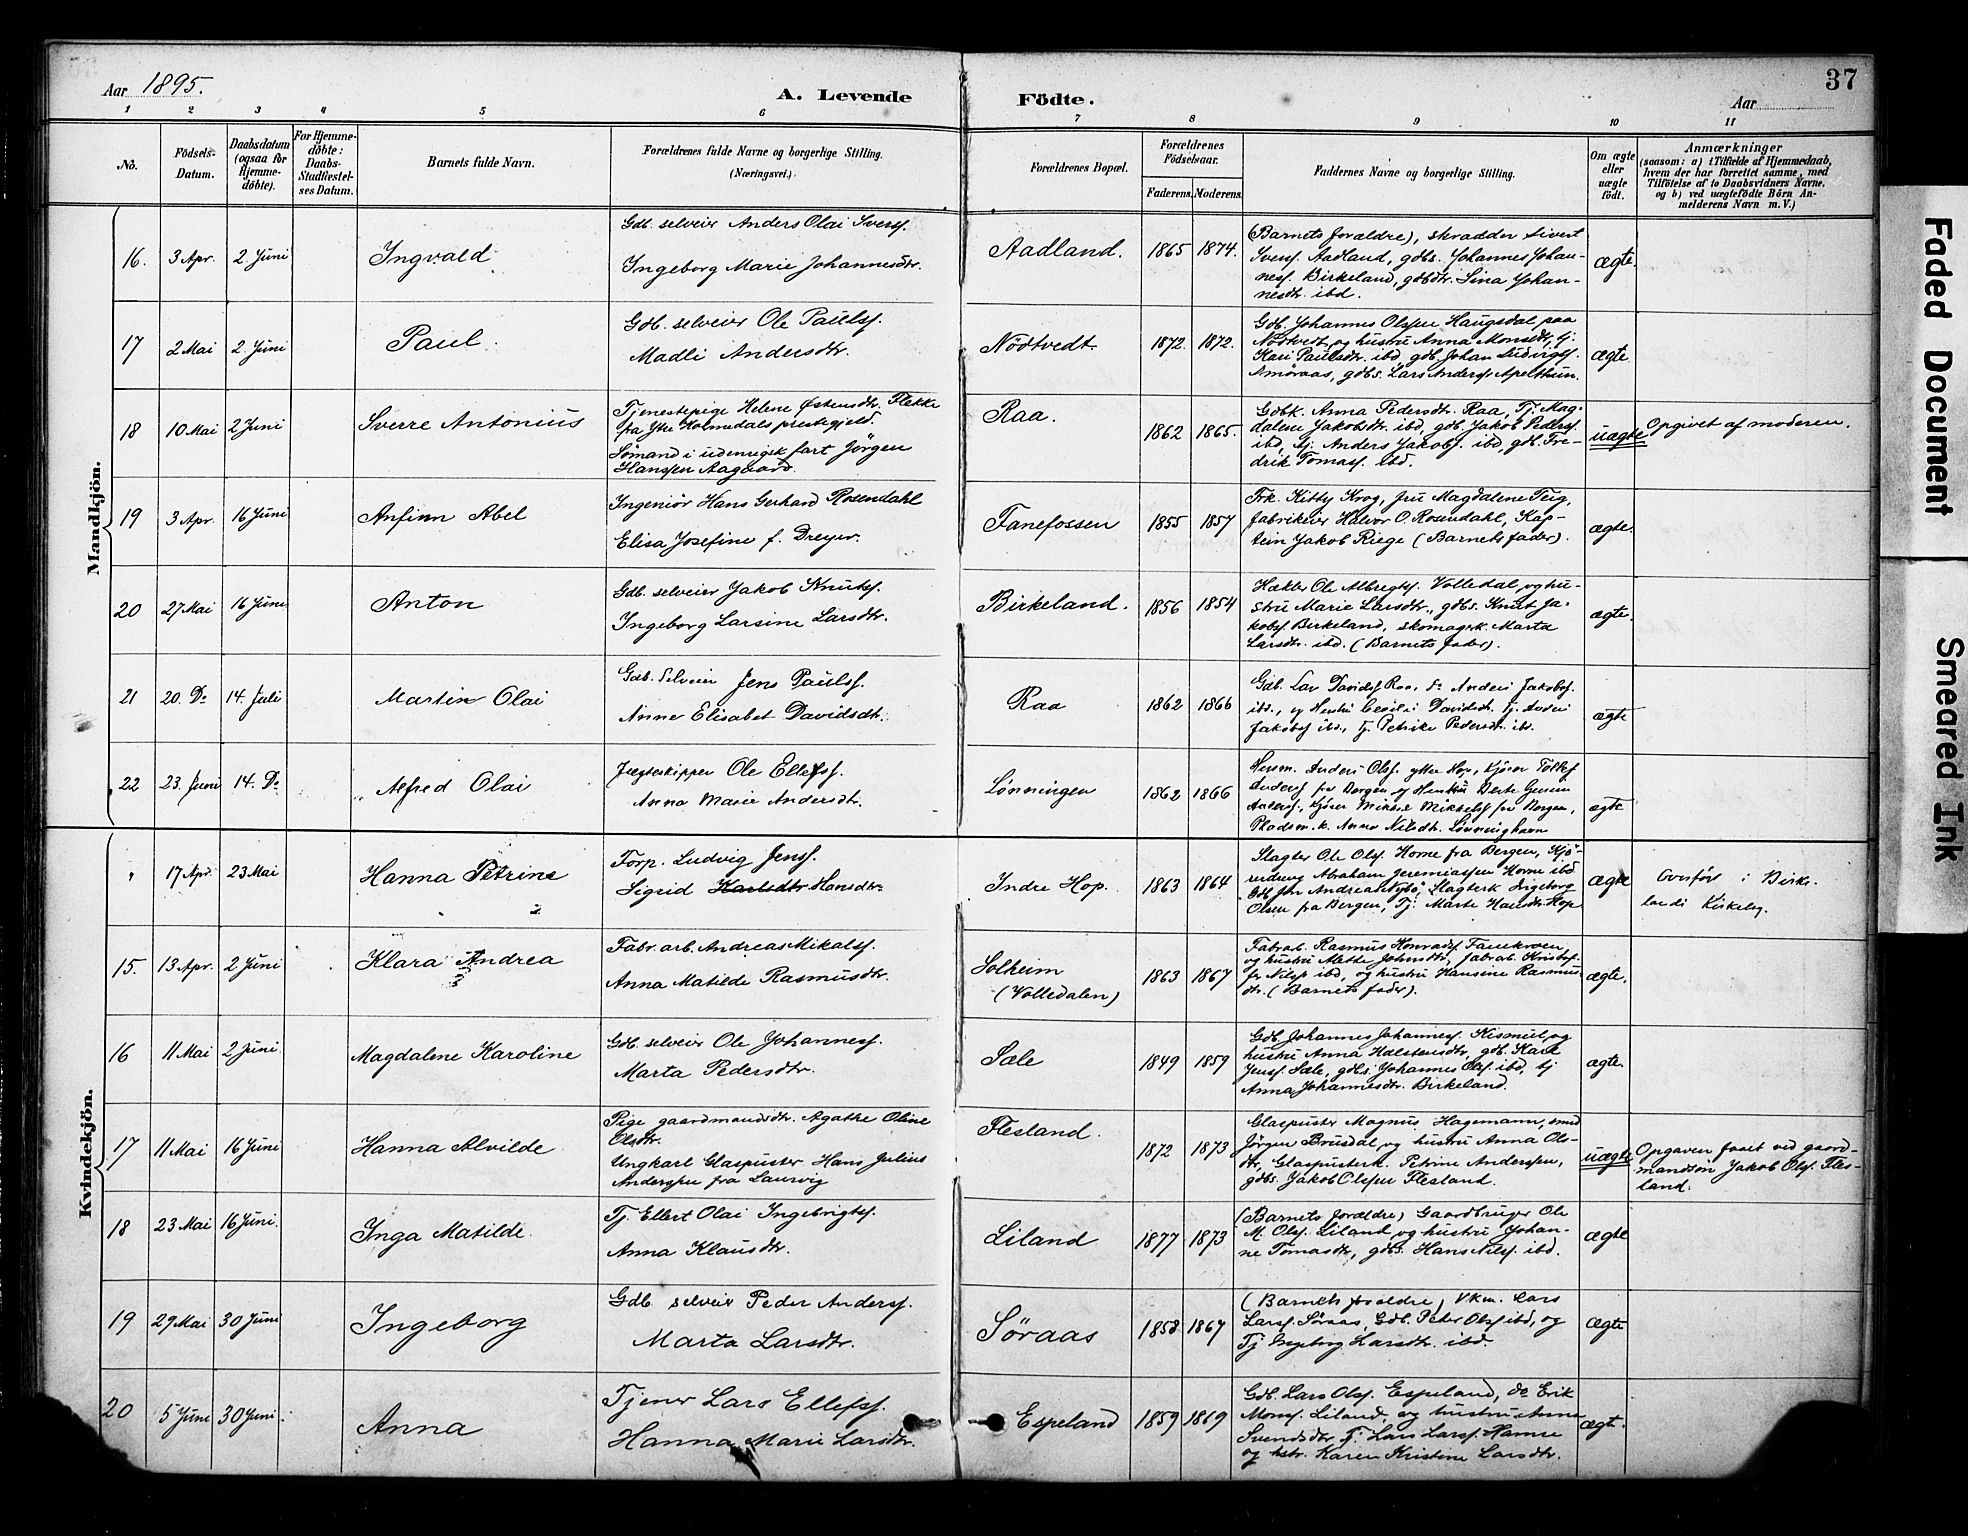 37
Aar 1895.
A. Levende
Födte.
Aar
1 2 3 4 5 6 7 8 9 10 11
No.
Födsels-Datum.
Daabsdatum (ogsaa för Hjemme-döbte).
For Hjemme-döbte: Daabs-Stadfæstel-ses Datum.
Barnets fulde Navn.
Forældrenes fulde Navne og borgerlige Stilling. (Næringsvei.)
Forældrenes Bopæl.
Forældrenes Födselsaar.
Faderens. Moderens.
Faddernes Navne og borgerlige Stilling.
Om ægte eller uægte födt.
Anmærkninger
(saasom: a) i Tilfælde af Hjemmedaab, hvem der har forrettet samme, med Tilföielse af to Daabsvidners Navne, og b) ved uægtefödte Börn An-melderens Navn m. V.)
Mandkjön.
16. 3 Apr. 2 Juni Ingvald
Gdb. selveier Anders Olai Sversf.
Ingeborg Marie Johannesdtr.
Aadland. 1865 1874.
(Barnets forældre), skradder Sivert
Sversf. Aadland, gdbs. Johannes Johan-
nesf. Birkeland, gdbdtr. Sina Johan-
nesdtr. ibd.
ægte.
17 2 Mai 2. Juni Paul.
Gdb. selveier Ole Paulsf.
Madli Andersdtr.
Nödtvedt. 1872. 1872.
Gdb. Johannes Olsen Haugsdal paa
Nödtvedt og hustru Anna Monsdtr, tj.
Kari Paulsdtr. ibd, gdb. Johan Ludvigsf.
Smöraas, gdbs. Lars Andersf. Apelthun.
ægte
18 10 Mai 2 Juni Sverre Antonius
Tjenestepige Helene Østensdtr. Flekke
fra Ytre Holmedals prestegjeld.
Sømand i udenrigsk fart Jörgen
Hanssen Aagaard.
Raa. 1862 1865.
Gdbk. Anna Pedersdtr. Raa, Tj. Mag-
dalene Jakobsdtr. ibd, gdb. Jakob Pedersf.
ibd, tj. Anders Jakobsf. ibd, gdb. Fre-
drik Tomasf. ibd.
uægte Opgivet af moderen.
19 3 Apr. 16 Juni Anfinn Abel
Ingeniör Hans Gerhard Rosendahl
Elisa Josefine f. Dreyer.
Fanefossen 1855 1857
Frk. Kitty Krog, fru Magdalene Teig,
fabrikeier Halvor O. Rosendahl, Kap-
tein Jakob Riege (Barnets fader).
ægte.
20 27 Mai 16 Juni Anton
Gdb. selveier Jakob Knutsf.
Ingeborg Larsine Larsdtr.
Birkeland. 1856 1854
Ole Albregtsf. Volledal, og hu-
stru Marie Larsdtr., gdbs. Knut Ja-
kobsf. Birkeland, skomagerk. Marta
Larsdtr. ibd. (Barnets fader).
ægte.
21 20. Do 14. Juli Martin Olai
Gdb. Selveier Jens Paulsf.
Anne Elisabet Davidsdtr.
Raa 1862 1866
Gdb. Lars Davidsf. Raa, do Anders Jakobsf.
ibd., og Hustru Davidsdtr. Tj. Anders
Jakobsf. ibd., Tj. Petrike Pedersdtr. ibd.
ægte
22 23. Juni 14. Do Alfred Olai
Jægteskipper Ole Ellefsf.
Anna Marie Andersdtr.
Lönningen 1862 1866
Husm. Anders Olsf. ytre Hop,
Andersf. fra Bergen og Hustru Berte
Mikkel Mikkelsf. fra Bergen,
Pladsm.k. Anna Nilsdtr. Lønninghavn
ægte
Kvindekjön.
" 17 Apr. 23 Mai Hanna Petrine
Forp. Ludvig Jensf.
Sigrid Karlsdtr Hansdtr.
Indre Hop. 1863 1864
Slagter Ole Olsf. Horne fra Bergen, Kjö-
redreng Abraham Jeremiassen Horne ibd
Andreas Nybö, Slagterk Ingeborg
Olsen fra Bergen, Tj. Marte Hansdtr. Hop
ægte Overført i Birke-
lands Kirkebog.
15. 13 Apr. 2 Juni Klara Andrea
Fabr. arb. Andreas Mikalsf.
Anna Matilde Rasmusdtr.
Solheim
(Volledalen)
1863 1867
Fabrarb. Rasmus Konradsf. Fanekroen,
og hustru Alette Johnsdtr, fabrarb. Kristof-
fer Nilsf ibd, og hustru Hansine Rasmus
dtr. (Barnets fader).
ægte.
16 11 Mai 2 Juni. Magdalene Karoline
Gdb. selveier Ole Johannesf.
Marta Pedersdtr.
Sæle 1849 1859
Gdb. Johannes Johannesf. og
hustru Anna Halstensdtr, gdb. Karl
Jensf. Sæle, gdbs. Johannes Olsf. ibd, tj
Anna Johannesdtr. Birkeland.
ægte.
17 11 Mai 16 Juni Hanna Alvilde
Pige gaardmandsdtr. Agathe Oline
Olsdtr.
Ungkarl Glaspuster Hans Julius
Anderssen fra Laurvig
Flesland. 1872 1873
Glaspuster Magnus Hagemann, smed
Jörgen Brusdal og hustru Anna Ols-
dtr, Glaspusterk. Petrine Anderssen,
gdbs. Jakob Olssen Flesland.
uægte Opgaven faaet ved gaard-
mandsön Jakob Olsf. Fles-
land.
18 23 Mai 16 Juni. Inga Matilde.
Tj. Ellert Olai Ingebrigtsf.
Anna Klausdtr.
Liland 1877 1873
(Barnets forældre) Gaardbruger Ole
M. Olsf. Liland og hustru Johan-
ne Tomasdtr, gdbs. Hans Nilsf. ibd.
ægte
19 29 Mai 30 Juni Ingeborg
Gdb. selveier Peder Andersf.
Marta Larsdtr.
Söraas 1858 1867
(Barnets forældre) Lars
Larsf. Söraas, Gdb. Peter Olsf ibd, og
Tj Ingeborg Larsdtr. ibd.
ægte
20 5 Juni 30 Juni. Anna
Tjener Lars Ellefsf.
Hanna Marie Larsdtr.
Espeland 1859 1869
Gdb. Lars Olsf. Espeland, do Erik
Monsf. Liland, og hustru Anna
Svendsdtr Tj. Lars Larsf. Hamre
og hstr. Karen Kristine Larsdtr.
ægte.
Faded Document
Smeared Ink